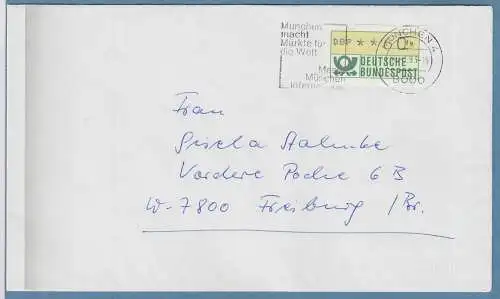 München
macht
Märkte für
die Welt
Messe
München
International
MÜNCHEN 4
DBP ★ ★
DEUTSCHE
BUNDESPOST
8000
Frau
Gisela
Vordere Poche 6 B
W-7800 Freiburg /Br.